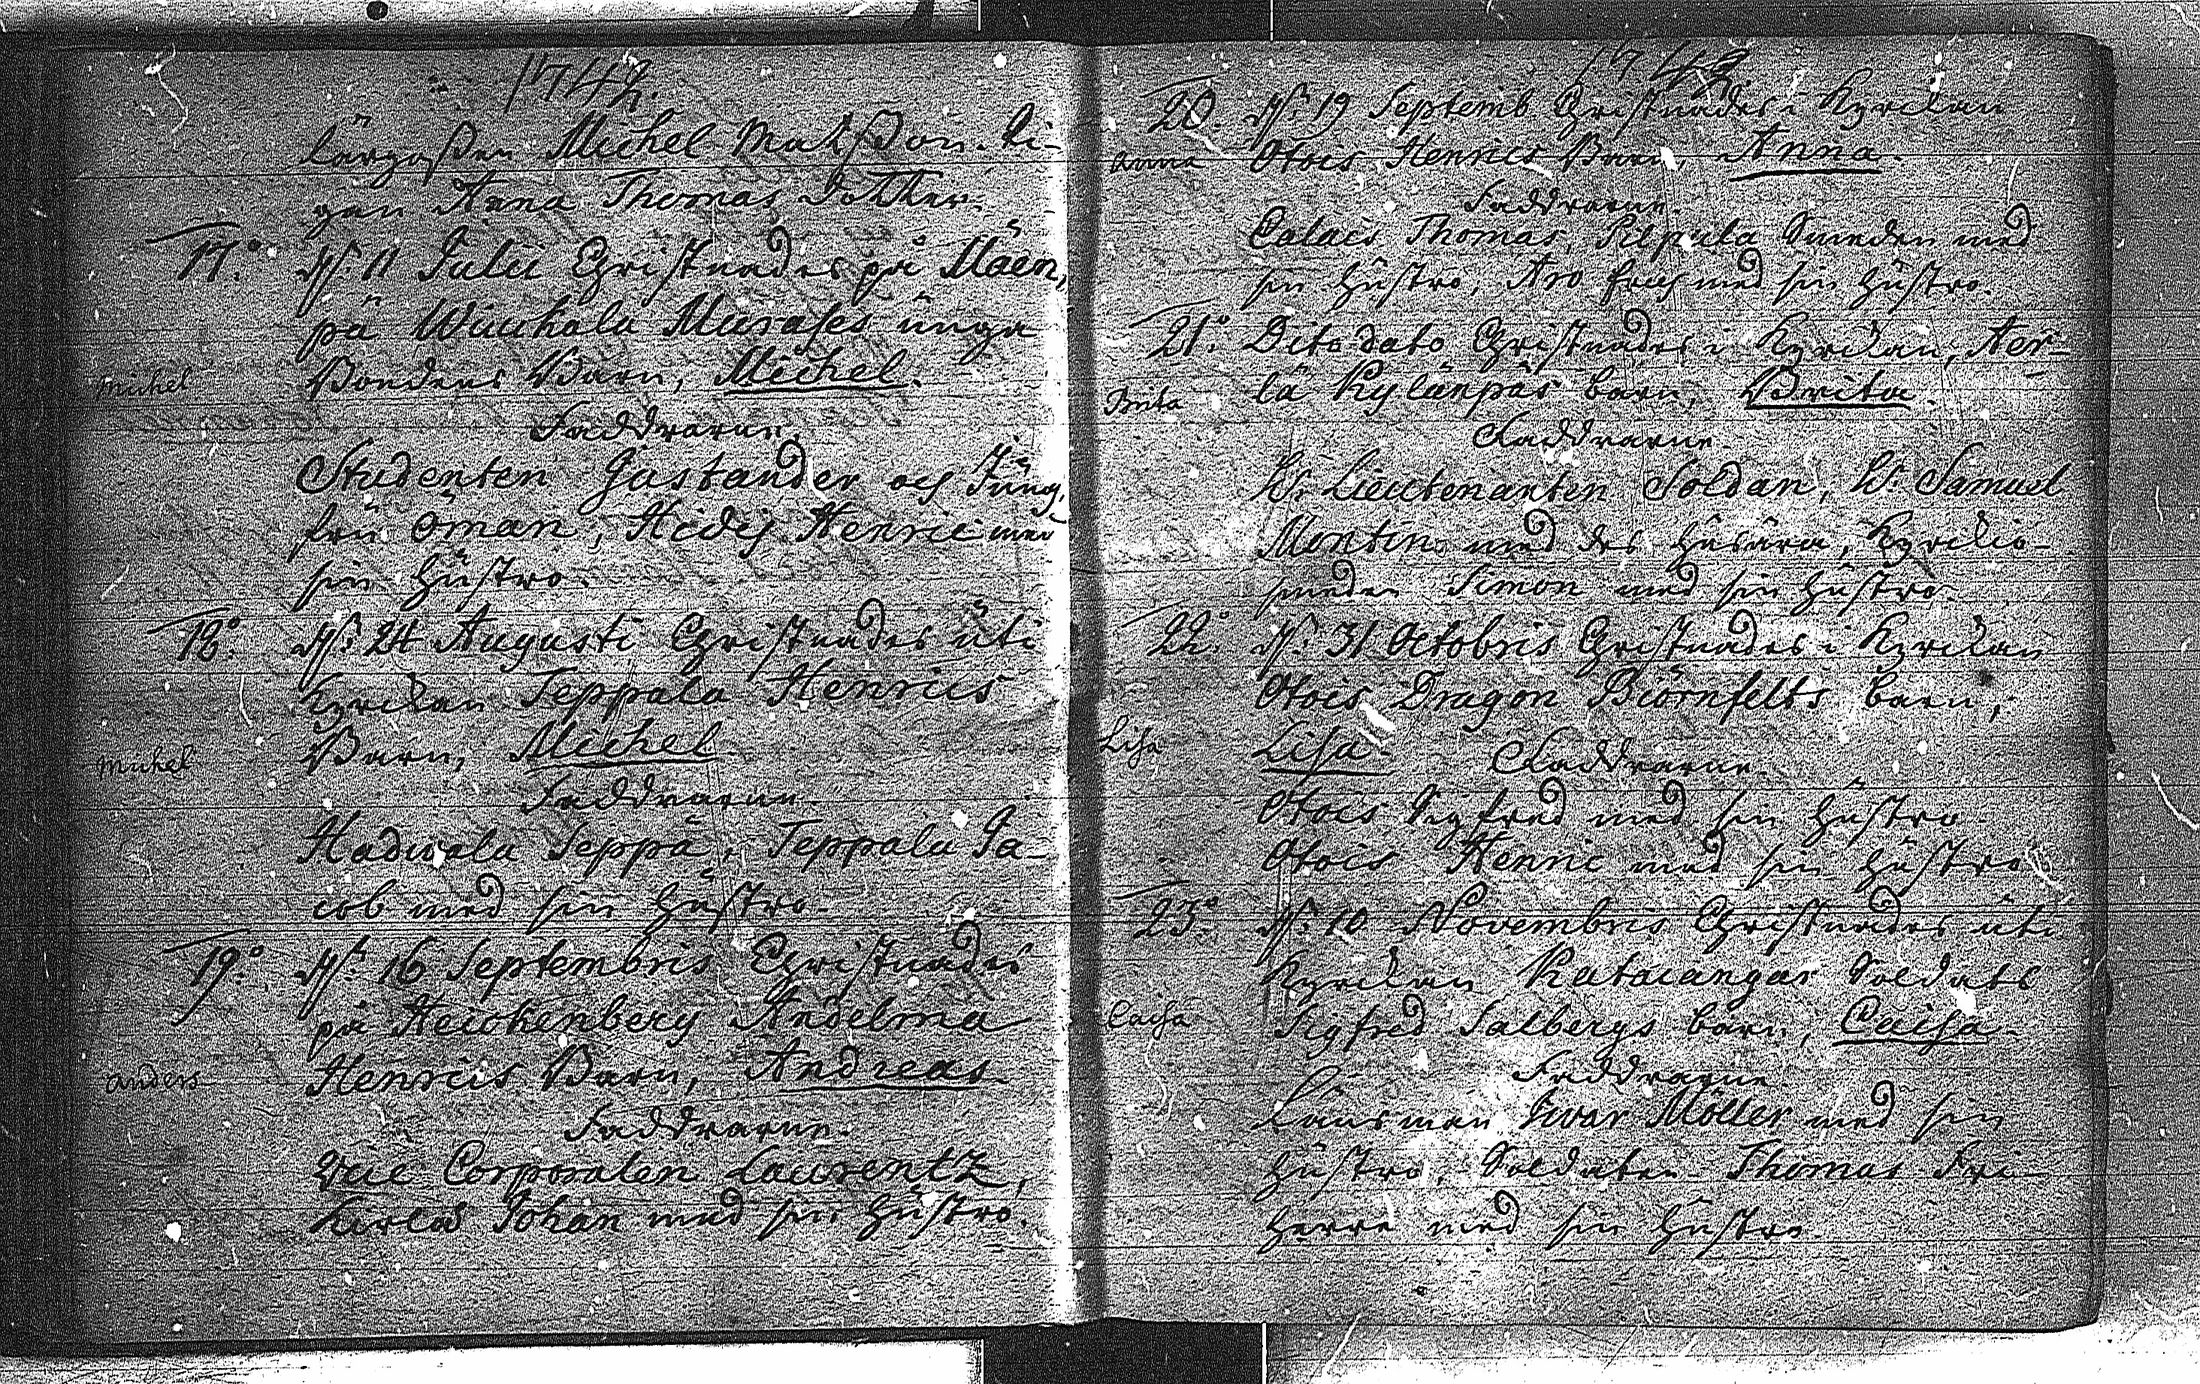 1742.
lärgossen Michel Matsson. Pi-
gan Anna Thomas dotter.
17.° D. 11 Julii Christnades på Måen,
på Wuuhala Murases unga
Michel Bondens Barn, Michel.
Faddrarne.
Studenten Gastander och Jung-
frú Öman, Heidis Henric med
sin hústro.
18.° D. 24 Augusti Christnades uti
Kyrckan Seppala Henrics
Michel Barn, Michel.
Faddrarne.
Hadwala Seppä, Teppala Ja-
cob med sin hústro.
19.° D. 16 Septembris Christnades
på Heickenberg Andelma
anders Henrics Barn, Andreas.
Faddrarne.
Vice Corporalen Laurentz,
Kirlas Johan med sin hústro.
1742
20. D. 19 Septemb. Christnades i Kyrckan
Anna Otois Henrics Barn, Anna.
Faddrarne.
Calais Thomas, Pilpala Smeden med
sin hústro, Aro med sin hústro.
21.° Dito dato Christnades i Kyrckan, Aer-
Brita lä Kylänpäs barn, Brita.
Faddrarne.
H. Lieutenanten Soldan, H. Samuel
Montin med des húsära, Kyrckio-
smeden Simon med sin hústro.
22.° D. 31 Octobris Christnades i Kyrckan
Otois Dragon Biörnfelts barn,
Lisa Lisa Faddrarne.
Otois Sigfred med sin hústro
Otois Henric med sin hústro
23.° D. 10 Novembris Christnades uti
Kyrckan Rataiangas Soldats
Caisa Sigfred Salbergs barn, Caisa.
Faddrarne
Länsman Iwar Möller med sin
hústro, Soldaten Thomas Fri-
herre med sin hústro